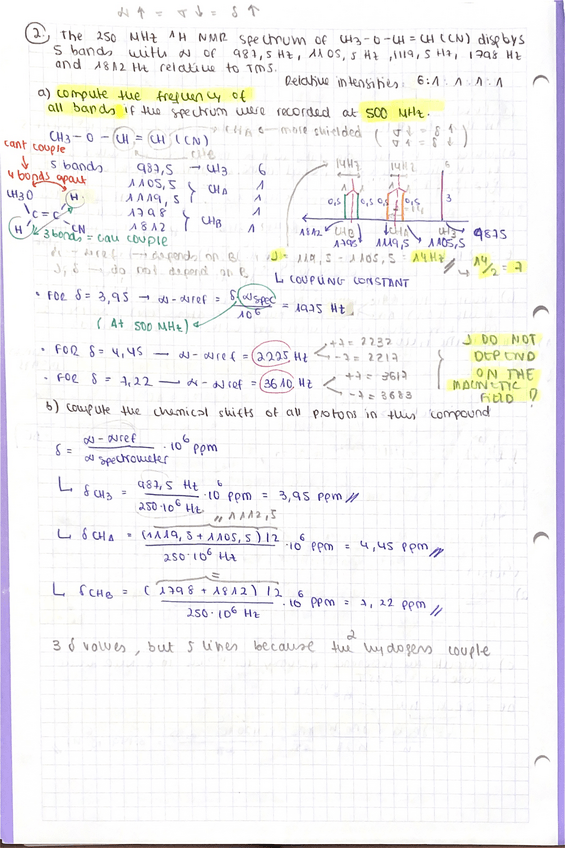 ν ↑ = σ ↓ = δ ↑
2. The 250 MHz ¹H NMR spectrum of CH3-O-CH=CH(CN) displays
5 bands with ν of 987,5 Hz, 1105,5 Hz, 1119,5 Hz, 1798 Hz
and 1812 Hz relative to TMS.
Relative intensities: 6:1:1:1:1
a) compute the frequency of
all bands if the spectrum were recorded at 500 MHz.
CH3-O-CH=CH(CN)
more shielded
cant couple
4 bonds apart
5 bands
987,5 → CH3 6
1105,5 } CHA 1
1119,5 1
1798 } CHB 1
1812 1
CH3O H
C=C
H CN
3 bonds = can couple
14Hz 14Hz 6
1 1 1 1
0,5 0,5 0,5 3
CHB CHA CH3
1812 1798 1119,5 1105,5 987,5
J = 1119,5 - 1105,5 = 14Hz // → 14/2 = 7
ν - νref → depends on B
J, δ → do not depend on B
↳ COUPLING CONSTANT
• FOR δ = 3,95 → ν-νref = δ · νspec / 10⁶ = 1975 Hz
(At 500 MHz)
• FOR δ = 4,45 → ν-νref = 2225 Hz +7 = 2232
-7 = 2217
• FOR δ = 7,22 → ν-νref = 3610 Hz +7 = 3617
-7 = 3683
J DO NOT
DEPEND
ON THE
MAGNETIC
FIELD!
b) compute the chemical shifts of all protons in this compound
δ = ν-νref / νspectrometer · 10⁶ ppm
↳ δCH3 = 987,5 Hz / 250·10⁶ Hz · 10⁶ ppm = 3,95 ppm //
1112,5
↳ δCHA = (1119,5 + 1105,5)/2 / 250·10⁶ Hz · 10⁶ ppm = 4,45 ppm //
↳ δCHB = (1798 + 1812)/2 / 250·10⁶ Hz · 10⁶ ppm = 7,22 ppm //
3 δ values, but 5 lines because the 2 hydrogens couple